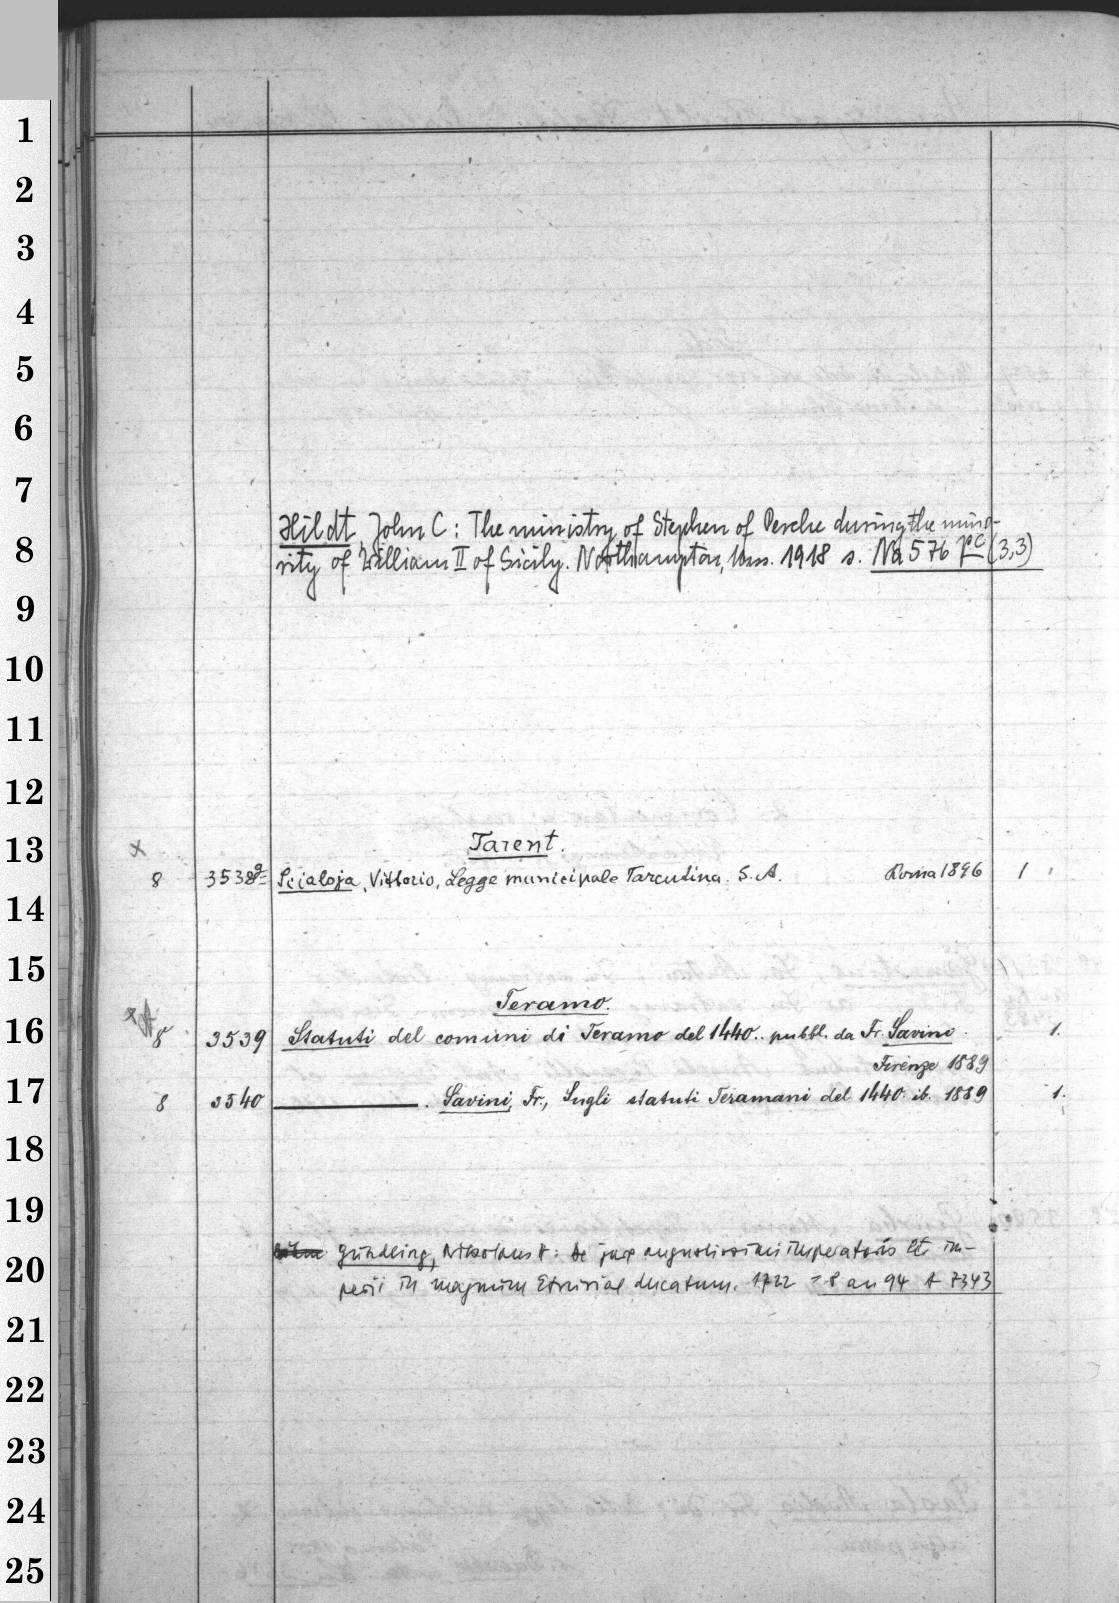 1
2
3
4
5
6
7
Hildt, John C: The ministry of Stephen of Perche during the mino-
8
rity of William II of Sicily. Northampton, Mass. 1918 s. Na 576 pc (3,3)
9
10
11
12
13
x
Tarent.
8 3538a Scialoja, Vittorio, Legge municipale Tarentina. S. A. Roma 1896 1
14
15
Teramo.
16
8 3539 Statuti del comuni di Teramo del 1440.. pubbl. da Fr. Savini. 1.
Firenze 1889
17
8 3540 ———. Savini, Fr., Sugli statuti Teramani del 1440. ib. 1889 1.
18
19
Gundling, Nikolaus H: De jure augustissimi imperatoris et im-
20
perii in magnum Etruriae ducatum. 1722 = 8 an 94 A 7343
21
22
23
24
25